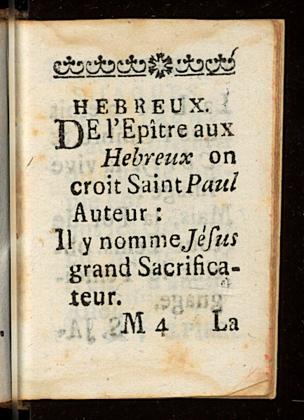 HEBREUX.
DE l'Epître aux
Hebreux on
croit Saint Paul
Auteur :
Il y nomme Jéſus
grand Sacrifica-
teur.
M 4 La